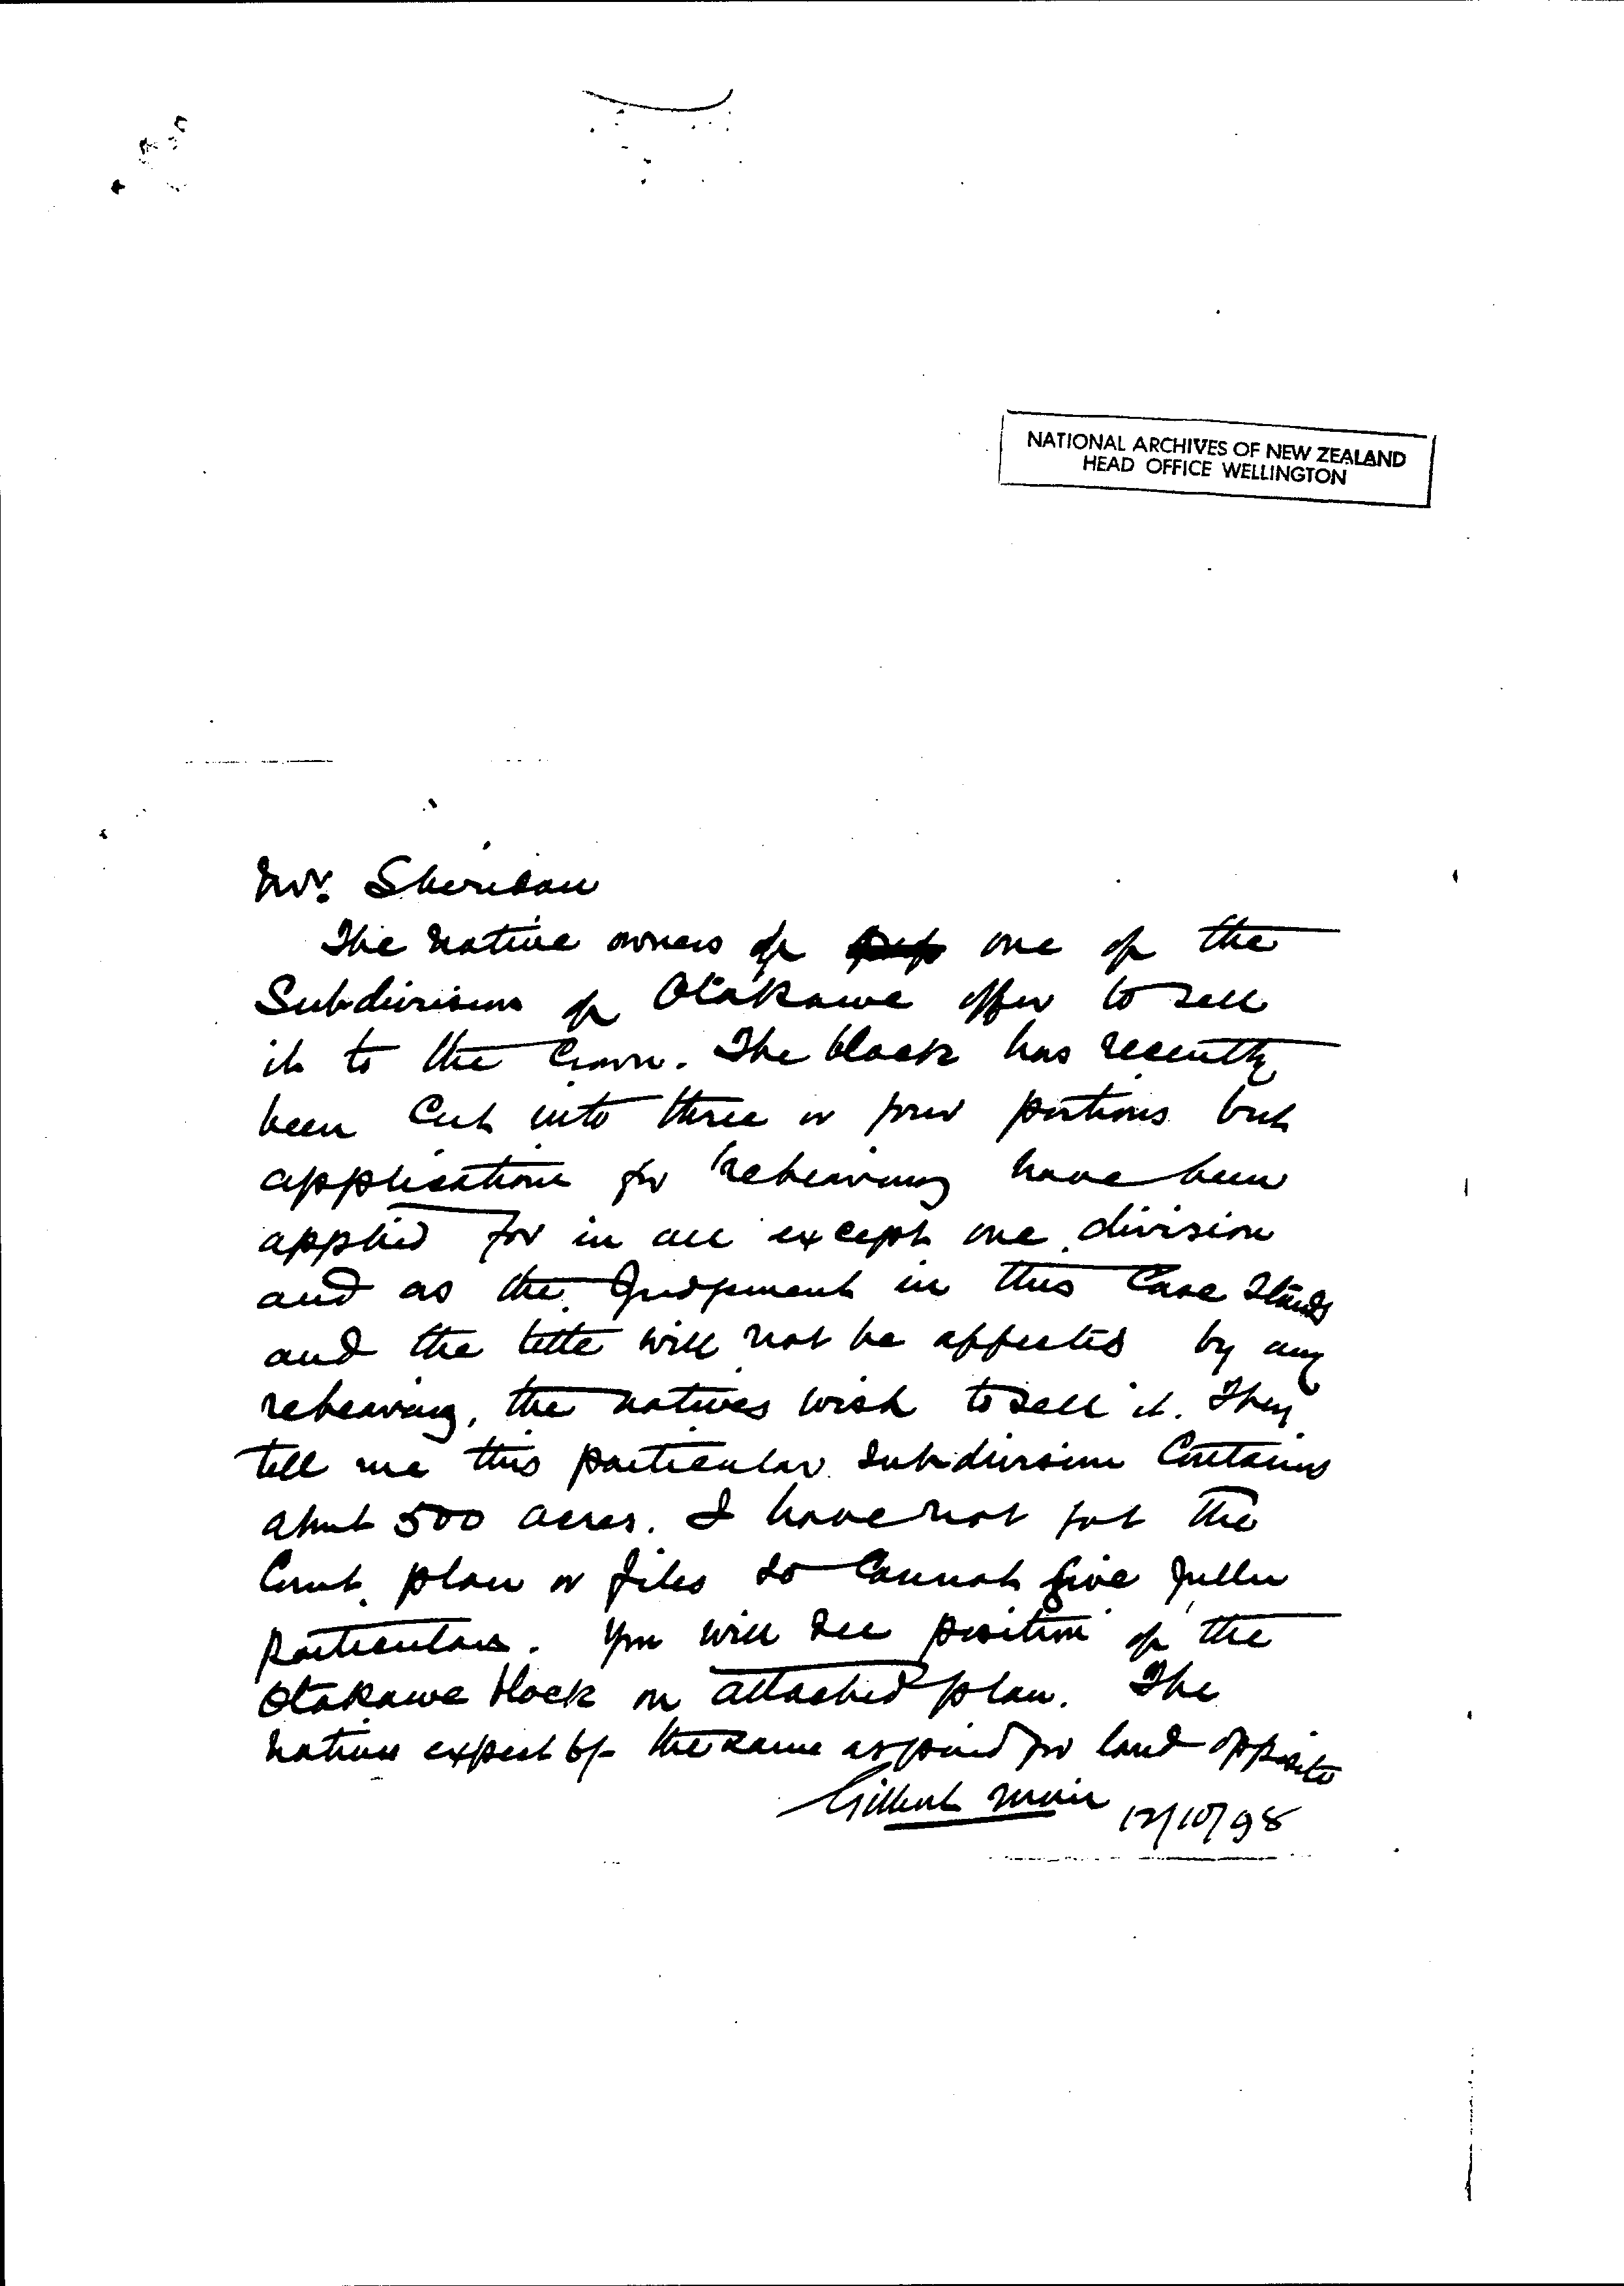 NATIONAL ARCHIVES OF NEW ZEALAND
HEAD OFFICE WELLINGTON
Mr. Sheridan
The Native owners of one of the
Subdivisions of Otakawe offer to sell
it to the Crown. The block has recently
been cut into three or four portions but
applications for rehearing have been
applied for in all except one division
and as the Judgement in this Case Stands
and the title will not be affected by any
rehearing, the natives wish to sell it. They
tell me this particular Subdivision Contains
about 500 acres. I have not got the
Court plan or files so Cannot give fuller
particulars. You will see position of the
Otakawe block on attached plan. The
natives expect 6/- the same as paid for land opposite
Gilbert Mair 12/10/98